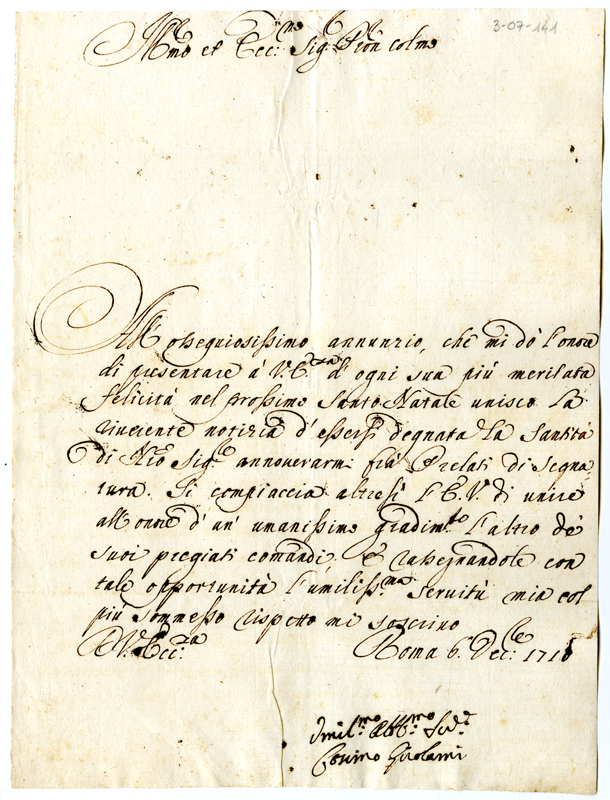 3-07-141
Ill.mo et Ecc.mo Sig.r Pron Colmo
All' ossequiosissimo annunzio, che mi dò l'onore
di presentare à V. Ecc.za d'ogni sua più meritata
felicità nel prossimo Santo Natale unisco la
riverente notizia d'essersi degnata la Santità
di Nro Sig.re annoverarmi frà Prelati di Segna
tura. Si compiaccia altresì l'E.V. di unire
all'onore d'un' umanissimo gradim.to l'altro de
suoi pregiati comandi, E rassegnandole con
tale opportunità l'umiliss.ma servitù mia col
più sommesso rispetto mi soscrivo
D. V. Ecc.za Roma 6. Dec.bre 1716
Umil.mo et Obb.mo Ser.e
Cosimo Girolami